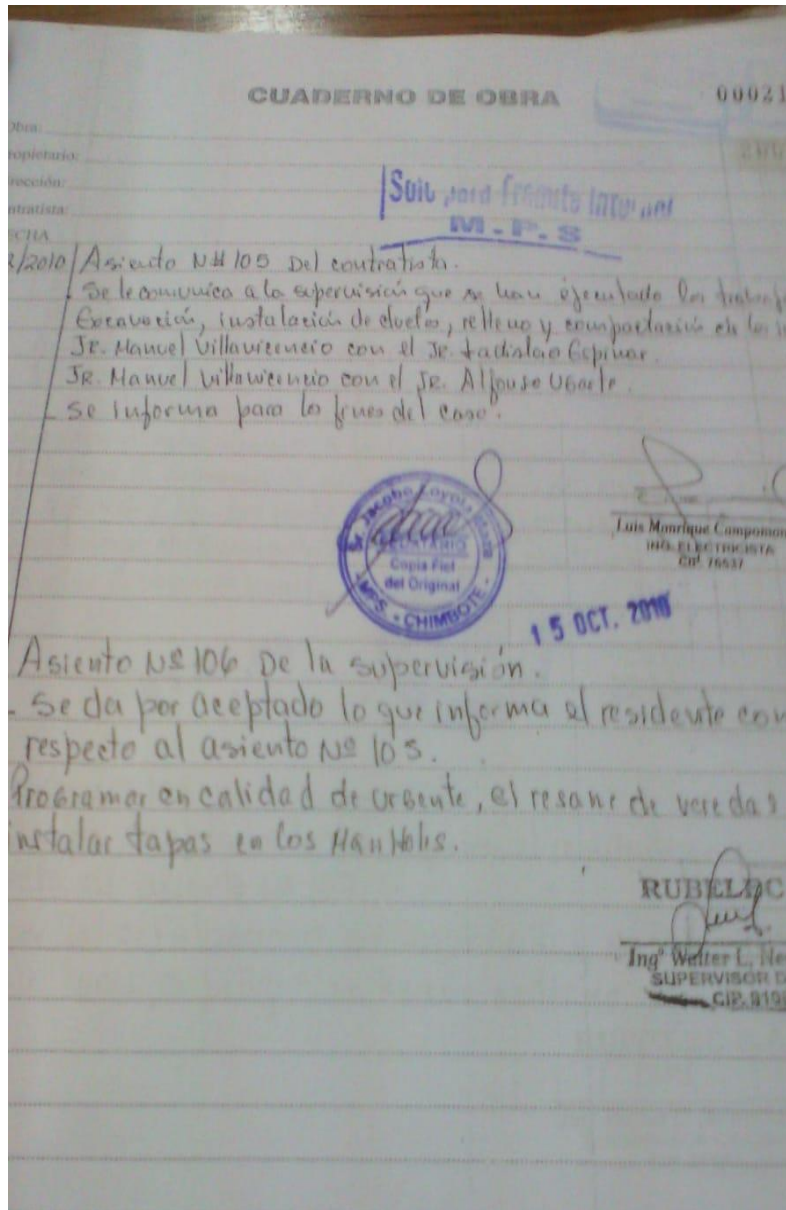 CUADERNO DE OBRA
00021
Obra:
ropietario:
rección:
ntratista:
ECHA
Solo para Tramite Interno
M.P.S
2/2010 Asiento Nº 105 Del contratista.
Se le comunica a la supervisión que se han ejecutado los trabaj
Excavación, instalación de ductos, relleno y compactación en los
JR. Manuel Villavicencio con el JR. Ladislao Espinar.
JR. Manuel Villavicencio con el JR. Alfonso Ugarte.
- Se informa para los fines del caso.
Sr. Jacobo Loyola
FEDATARIO
Copia Fiel
del Original
MPS - CHIMBOTE
Luis Manrique Campoman
ING. ELECTRICISTA
CIP. 76537
15 OCT. 2010
Asiento Nº 106 De la supervisión.
- Se da por aceptado lo que informa el residente con
respecto al asiento Nº 105.
Programar en calidad de urgente, el resane de veredas
instalar tapas en los Man Holes.
RUBEL
Ingº Walter L. Ne
SUPERVISOR D
CIP. 819